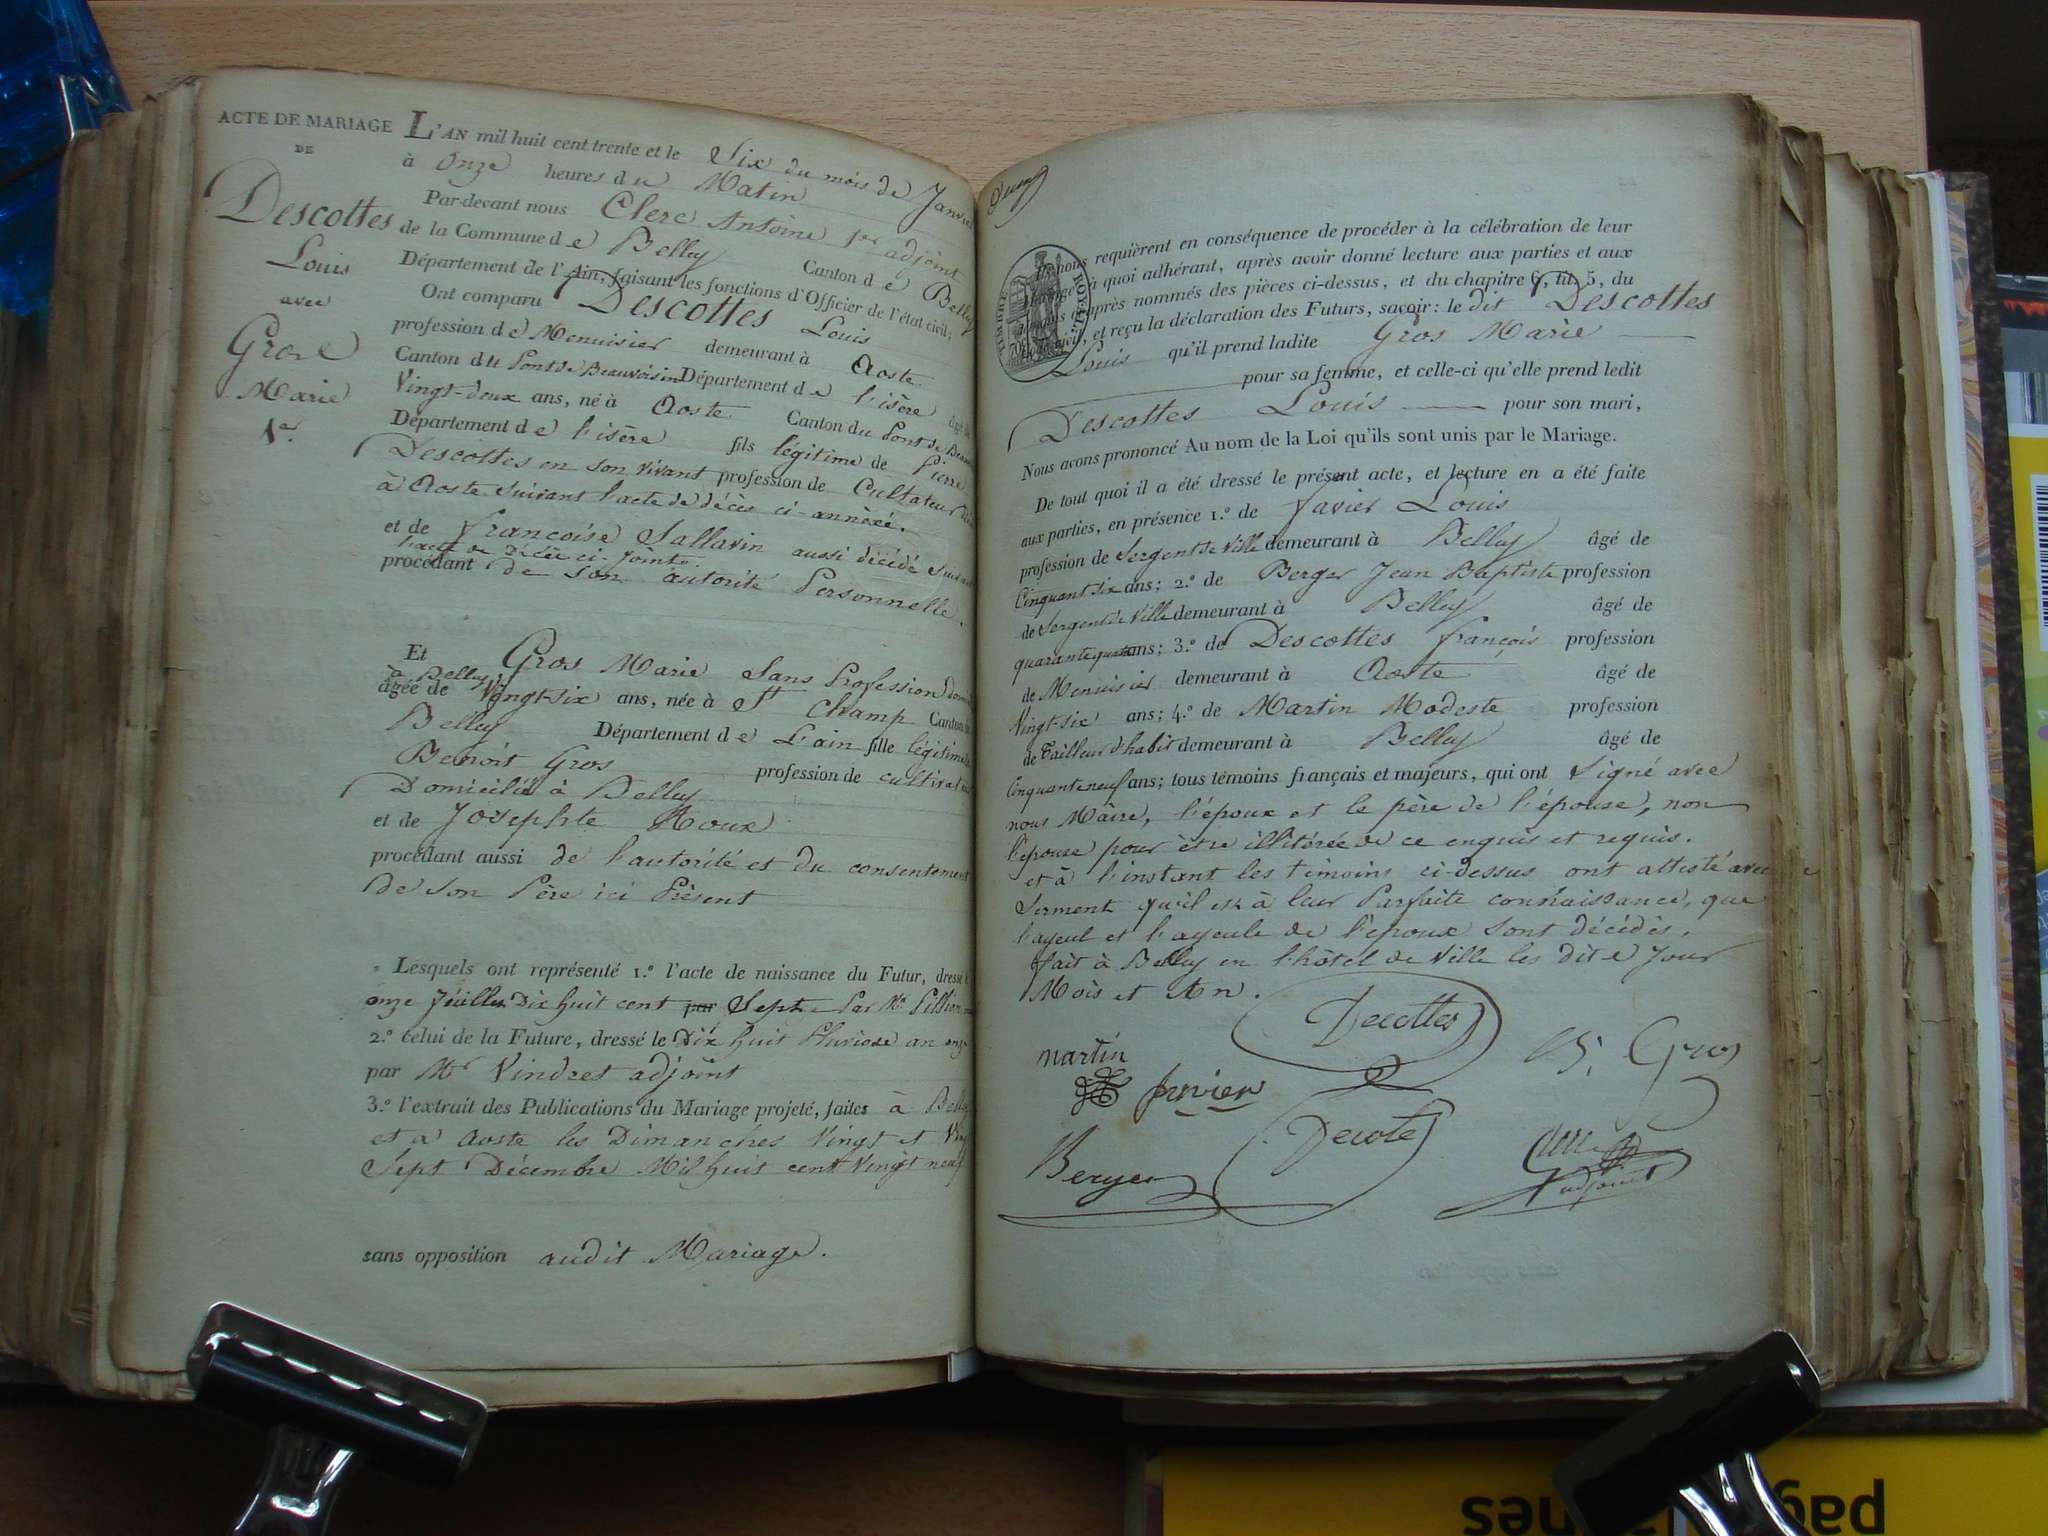 ACTE DE MARIAGE
DE
Descottes
Louis
avec
Gros
Marie
1er
L'AN mil huit cent trente et le Six du mois de Janvier
à Onze heures du Matin
Par-devant nous Clerc Antoine 1er adjoint
de la Commune de Belley Canton de Belley
Département de l'Ain, faisant les fonctions d'Officier de l'état civil;
Ont comparu Descottes Louis
profession de Menuisier demeurant à Aoste
Canton du Pont de Beauvoisin Département de l'isère âgé de
Vingt-deux ans, né à Aoste Canton du Pont de Beau
Département de l'isère fils légitime de Pierre
Descottes en son vivant profession de Cultateur
à Aoste suivant l'acte de décès ci-annèxé.
et de françoise Sallavin aussi décédé suivant
l'acte de Décès ci-jointe
procédant de son autorité Personnelle.
Et Gros Marie Sans Profession
à Belley
âgée de Vingt-six ans, née à St Champ Canton
Belley Département de L'ain fille légitime
Benoit Gros profession de cultivat
Domicilié à Belley
et de Josephte Roux
procédant aussi de l'autorité et du consentement
de son Père ici Présent
Lesquels ont représenté 1.º l'acte de naissance du Futur, dressé
onze Juillet Dix huit cent par Sept Par Mr
2.º celui de la Future, dressé le Dix huit Pluviose an onze
par Mr Vindret adjoint
3.º l'extrait des Publications du Mariage projeté, faites à Belley
et à Aoste les Dimanches Vingt et Vingt
Sept Décembre Mil huit cent Vingt neuf
sans opposition audit Mariage.
TIMBRE ROYAL
nous requièrent en conséquence de procéder à la célébration de leur
à quoi adhérant, après avoir donné lecture aux parties et aux
après nommés des pièces ci-dessus, et du chapitre 6, tit. 5, du
civil, et reçu la déclaration des Futurs, savoir: le dit Descottes
Louis qu'il prend ladite Gros Marie
pour sa femme, et celle-ci qu'elle prend ledit
Descottes Louis pour son mari,
Nous avons prononcé Au nom de la Loi qu'ils sont unis par le Mariage.
De tout quoi il a été dressé le présent acte, et lecture en a été faite
aux parties, en présence 1.º de Javier Louis
profession de Sergent de Ville demeurant à Belley âgé de
Cinquant six ans; 2.º de Berger Jean Baptiste profession
de Sergent de Ville demeurant à Belley âgé de
quarante ans; 3.º de Descottes françois profession
de Menuisier demeurant à Aoste âgé de
Vingt-six ans; 4.º de Martin Modeste profession
de Tailleur d'habit demeurant à Belley âgé de
Cinquante neuf ans; tous témoins français et majeurs, qui ont Signé avec
nous Màire, l'époux et le père de l'épouse, non
l'épouse pour être illitérée de ce enquis et requis.
et à l'instant les témoins ci-dessus ont attesté avec
Serment qu'il est à leur Parfaite connaissance, que
l'ayeul et l'ayeule de l'époux sont décédés.
fait à Belley en l'hôtel de Ville les dit Jour
Mois et An.
Decottes
martin
Janvier
B. Gros
Decote
Berger
Clerc
adjoint